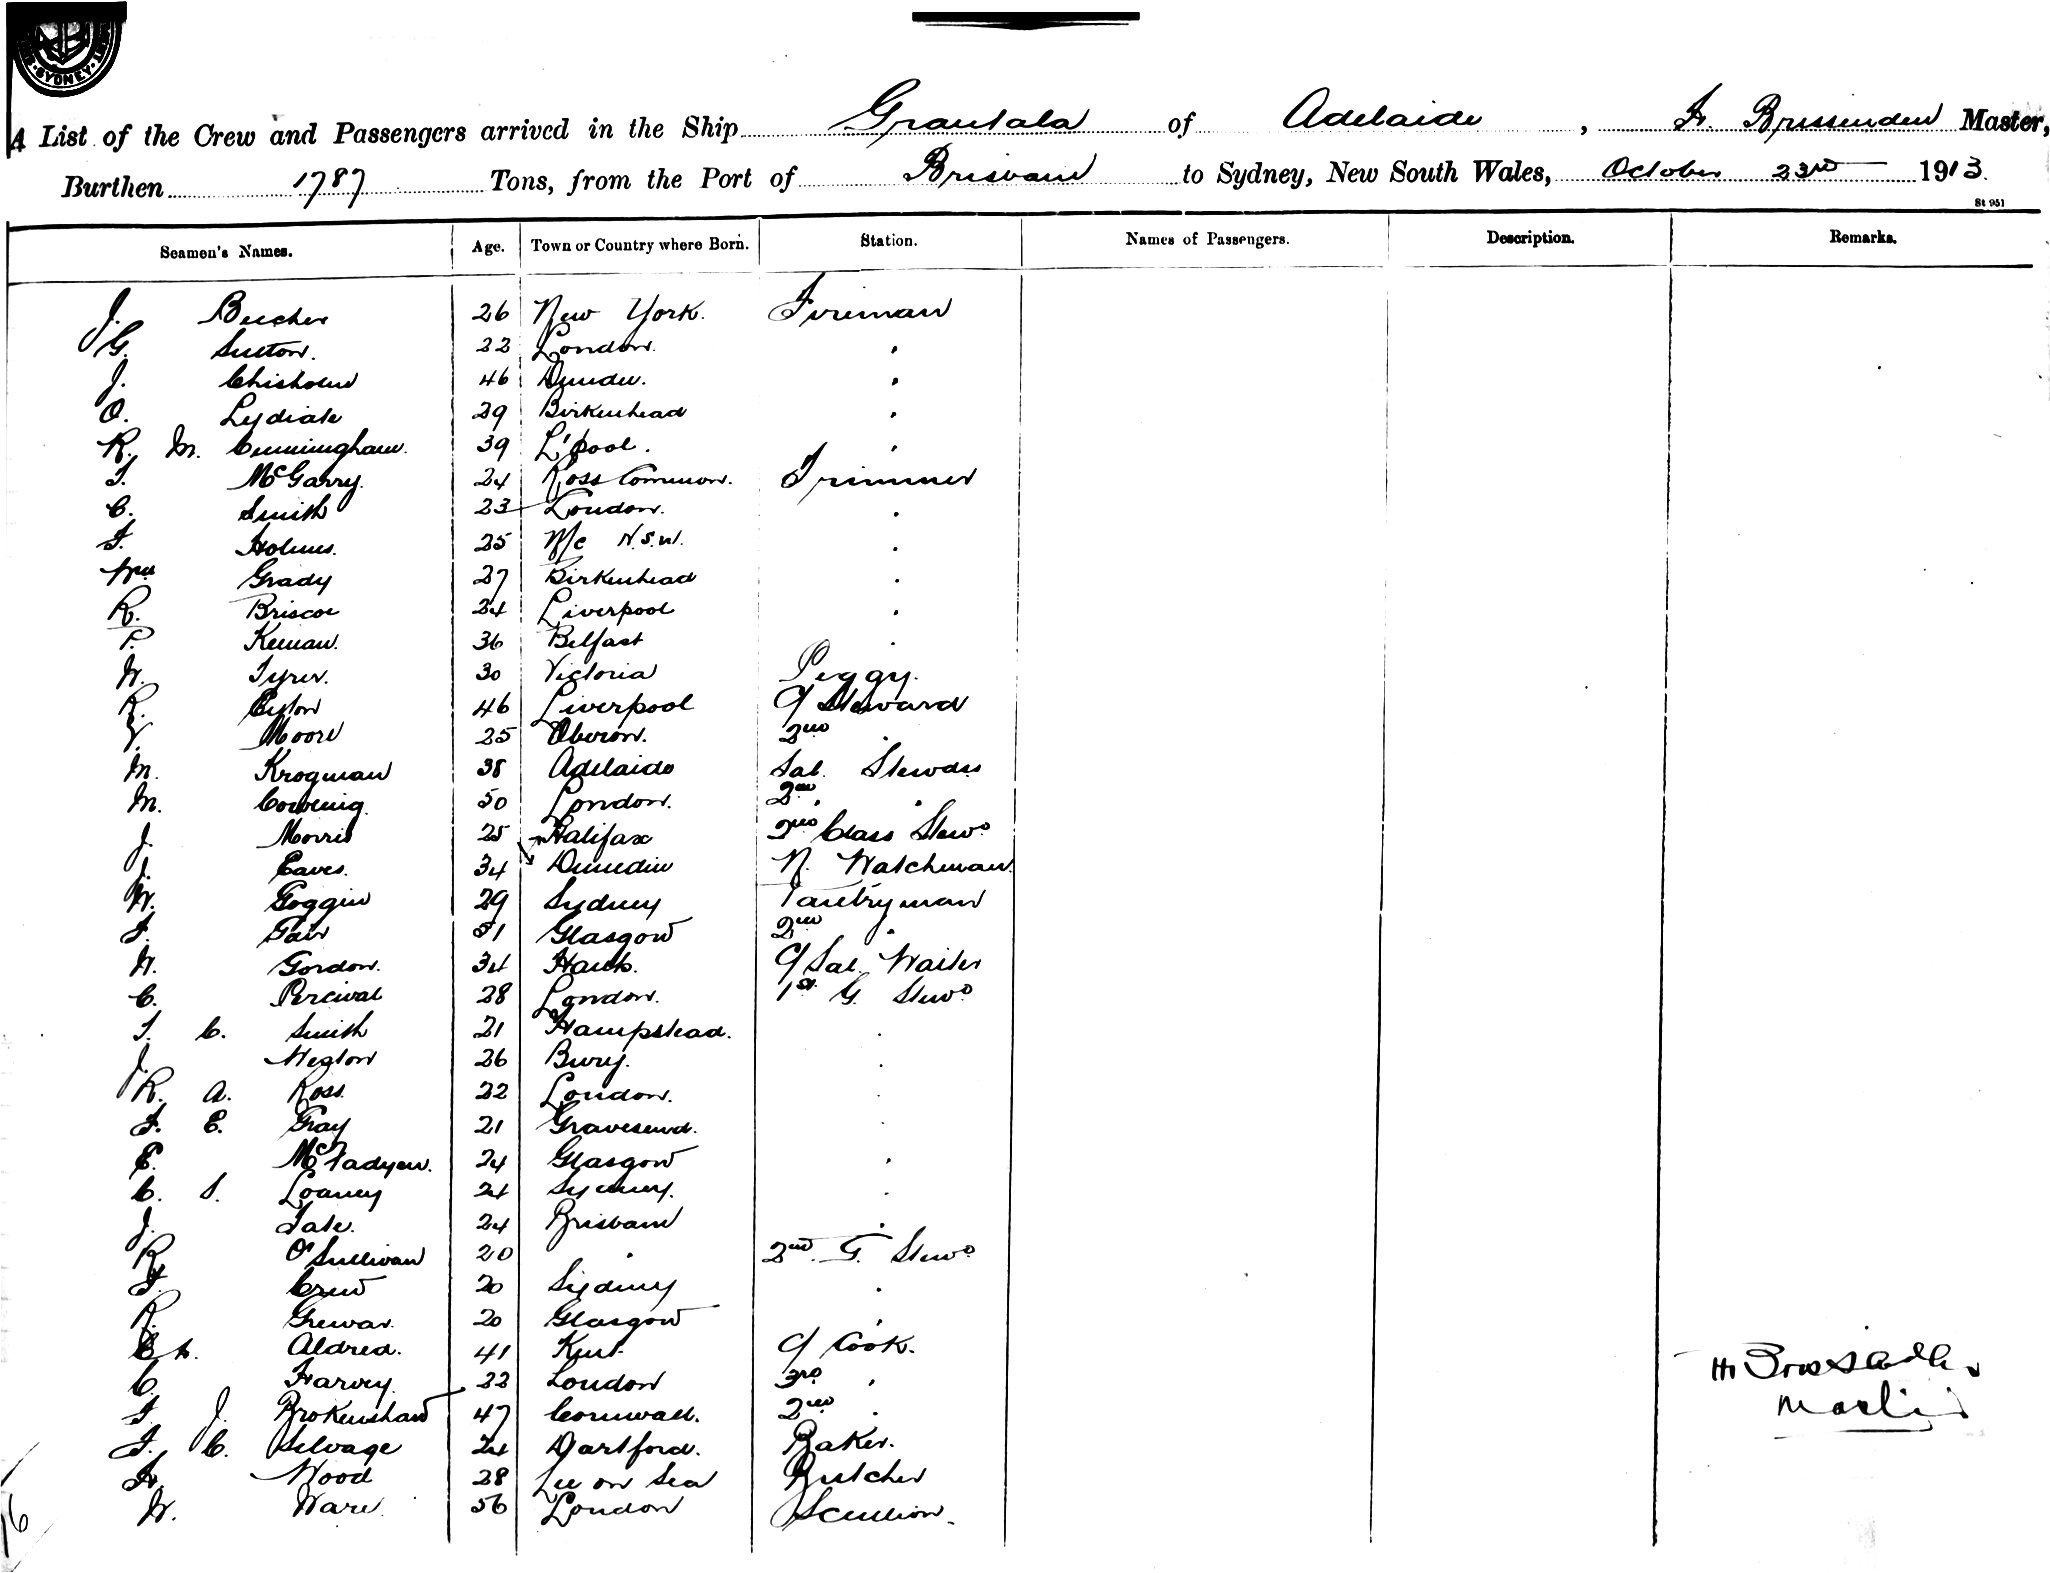 SYDNEY
A List of the Crew and Passengers arrived in the Ship Grantala of Adelaide, H. Brissenden Master,
Burthen 1787 Tons, from the Port of Brisbane to Sydney, New South Wales, October 23rd 1913.
St 951
Seamen's Names. Age. Town or Country where Born. Station. Names of Passengers. Description. Remarks.
J. Beecher 26 New York. Fireman
G. Sutton. 22 London. "
J. Chisholm 46 Dundee. "
O. Lydiate 29 Birkenhead "
R. M. Cunningham. 39 L'pool. "
T. McGarry. 24 Ross Common. Trimmer
C. Smith 23 London. "
F. Holmes. 25 N/c N.S.W. "
Wm Grady 27 Birkenhead "
R. Briscoe 24 Liverpool "
P. Keenan. 36 Belfast "
W. Tyrer. 30 Victoria Peggy.
R. Eyton 46 Liverpool C/ Steward
Moore 25 Oberon. 2nd "
M. Krogman 38 Adelaide Sal. Stewdss
M. Cowling. 50 London. 2nd " "
J. Morris 25 Halifax 2nd Class Stewd
J. Eaves. 34 Dunedin N. Watchman.
W. Goggin 29 Sydney Pantryman
F. Gair 51 Glasgow 2nd "
W. Gordon. 34 Hants. C/ Sal. Waiter
C. Percival 28 London. 1st G. Stewd
T. C. Smith 21 Hampstead. "
J. Weston 26 Bury. "
R. A. Ross 22 London. "
F. E. Gray 21 Gravesend. "
E. McFadyen. 24 Glasgow "
C. S. Loaney 24 Sydney. "
J. Tate. 24 Brisbane "
R. O'Sullivan 20 " 2nd G. Stewd
F. Crew 20 Sydney "
R. Grewar. 20 Glasgow "
E. H. Aldred. 41 Kent C/ Cook.
C. Harvey. 22 London 3rd "
T. J. Brokenshaw 47 Cornwall. 2nd "
F. C. Selvage 24 Dartford. Baker.
H. Wood 28 Lee on Sea Butcher
W. Ware. 56 London Scullion.
H Brissenden
Master
16